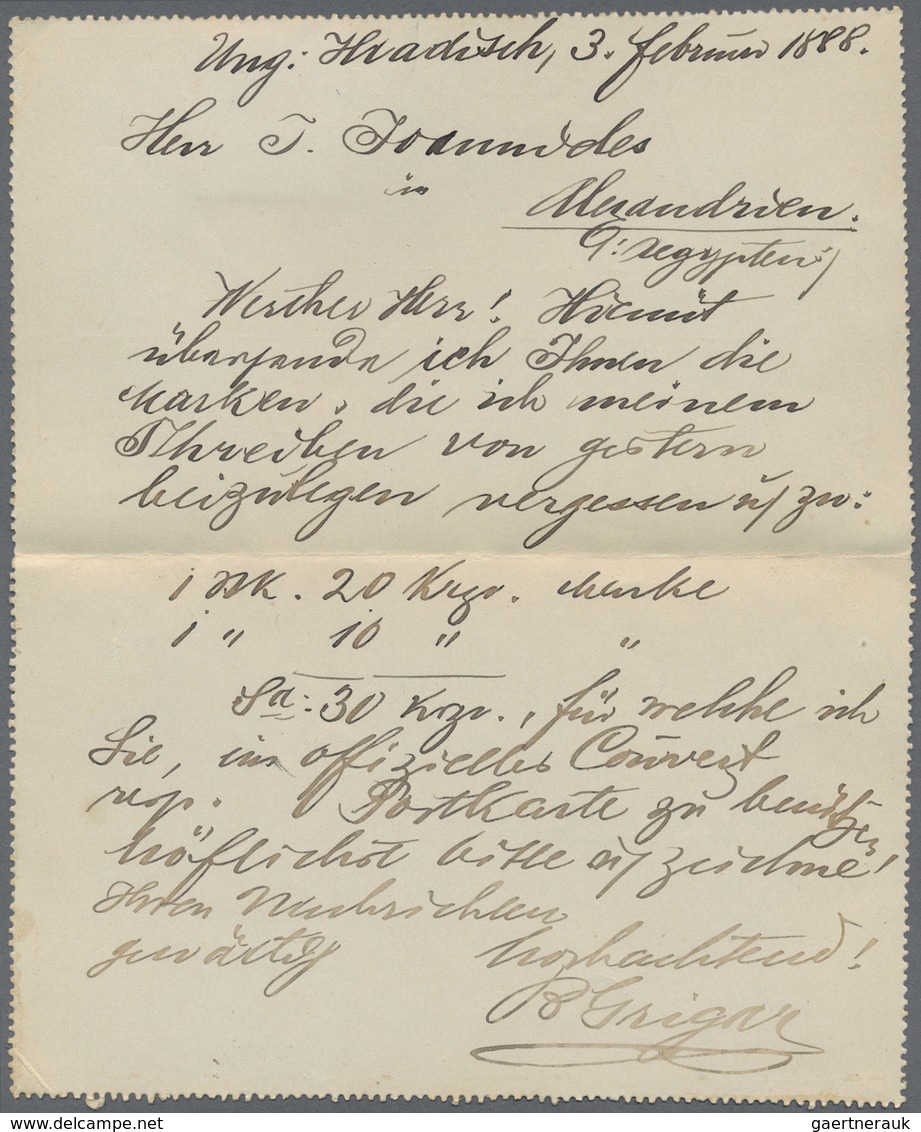 Ung: Hradisch, 3. Februar 1888.
Herr T. Joannides
in
Alexandrien.
(: Aegypten :)
Werther Herr! Hiemit
übersende ich Ihnen die
Marken, die ich meinem
Schreiben von gestern
beizulegen vergessen u/ zw:
1 Stk. 20 Krzr. Marke
1 " 10 " "
Sa: 30 Krzr., für welche ich
Sie, ein offizielles Couvert
resp. Postkarte zu benützen
höflichst bitte u/ zeichne!
Ihren Nachrichten
gewärtig
hochachtend!
B Grigar
gaertnerauk